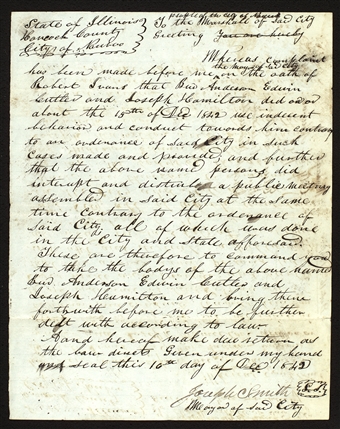 State of Illinois
Hancock County
City of Nauvoo
People of City of Nauvoo
To the Marshall of Said City
Greeting You are hereby
Whereas Complaint
the Mayor of Said City
has been made before me on the oath of
Robert Ivans that Bur Anderson Edwin
Cutler and Joseph Hamilton did on or
about the 15th of Dec 1842 use indecent
behavior and conduct towards him contrary
to an ordenance of Said City in such
Cases made and provided and further
that the above name persons did
interupt and disturb a public meeting
assembled in Said City at the same
time Contrary to the ordenance of
Said City all of which was done
in the City and State aforesaid
These are therefore to command you
to take the bodys of the above named
Bur Anderson Edwin Cutler and
Joseph Hamilton and bring them
forthwith before me to be further
delt with according to law
And hereof make due return as
the law directs Given under my hand
and seal this 16th day of Dec 1842
Joseph C Smith L.S.
Meayor of Said City